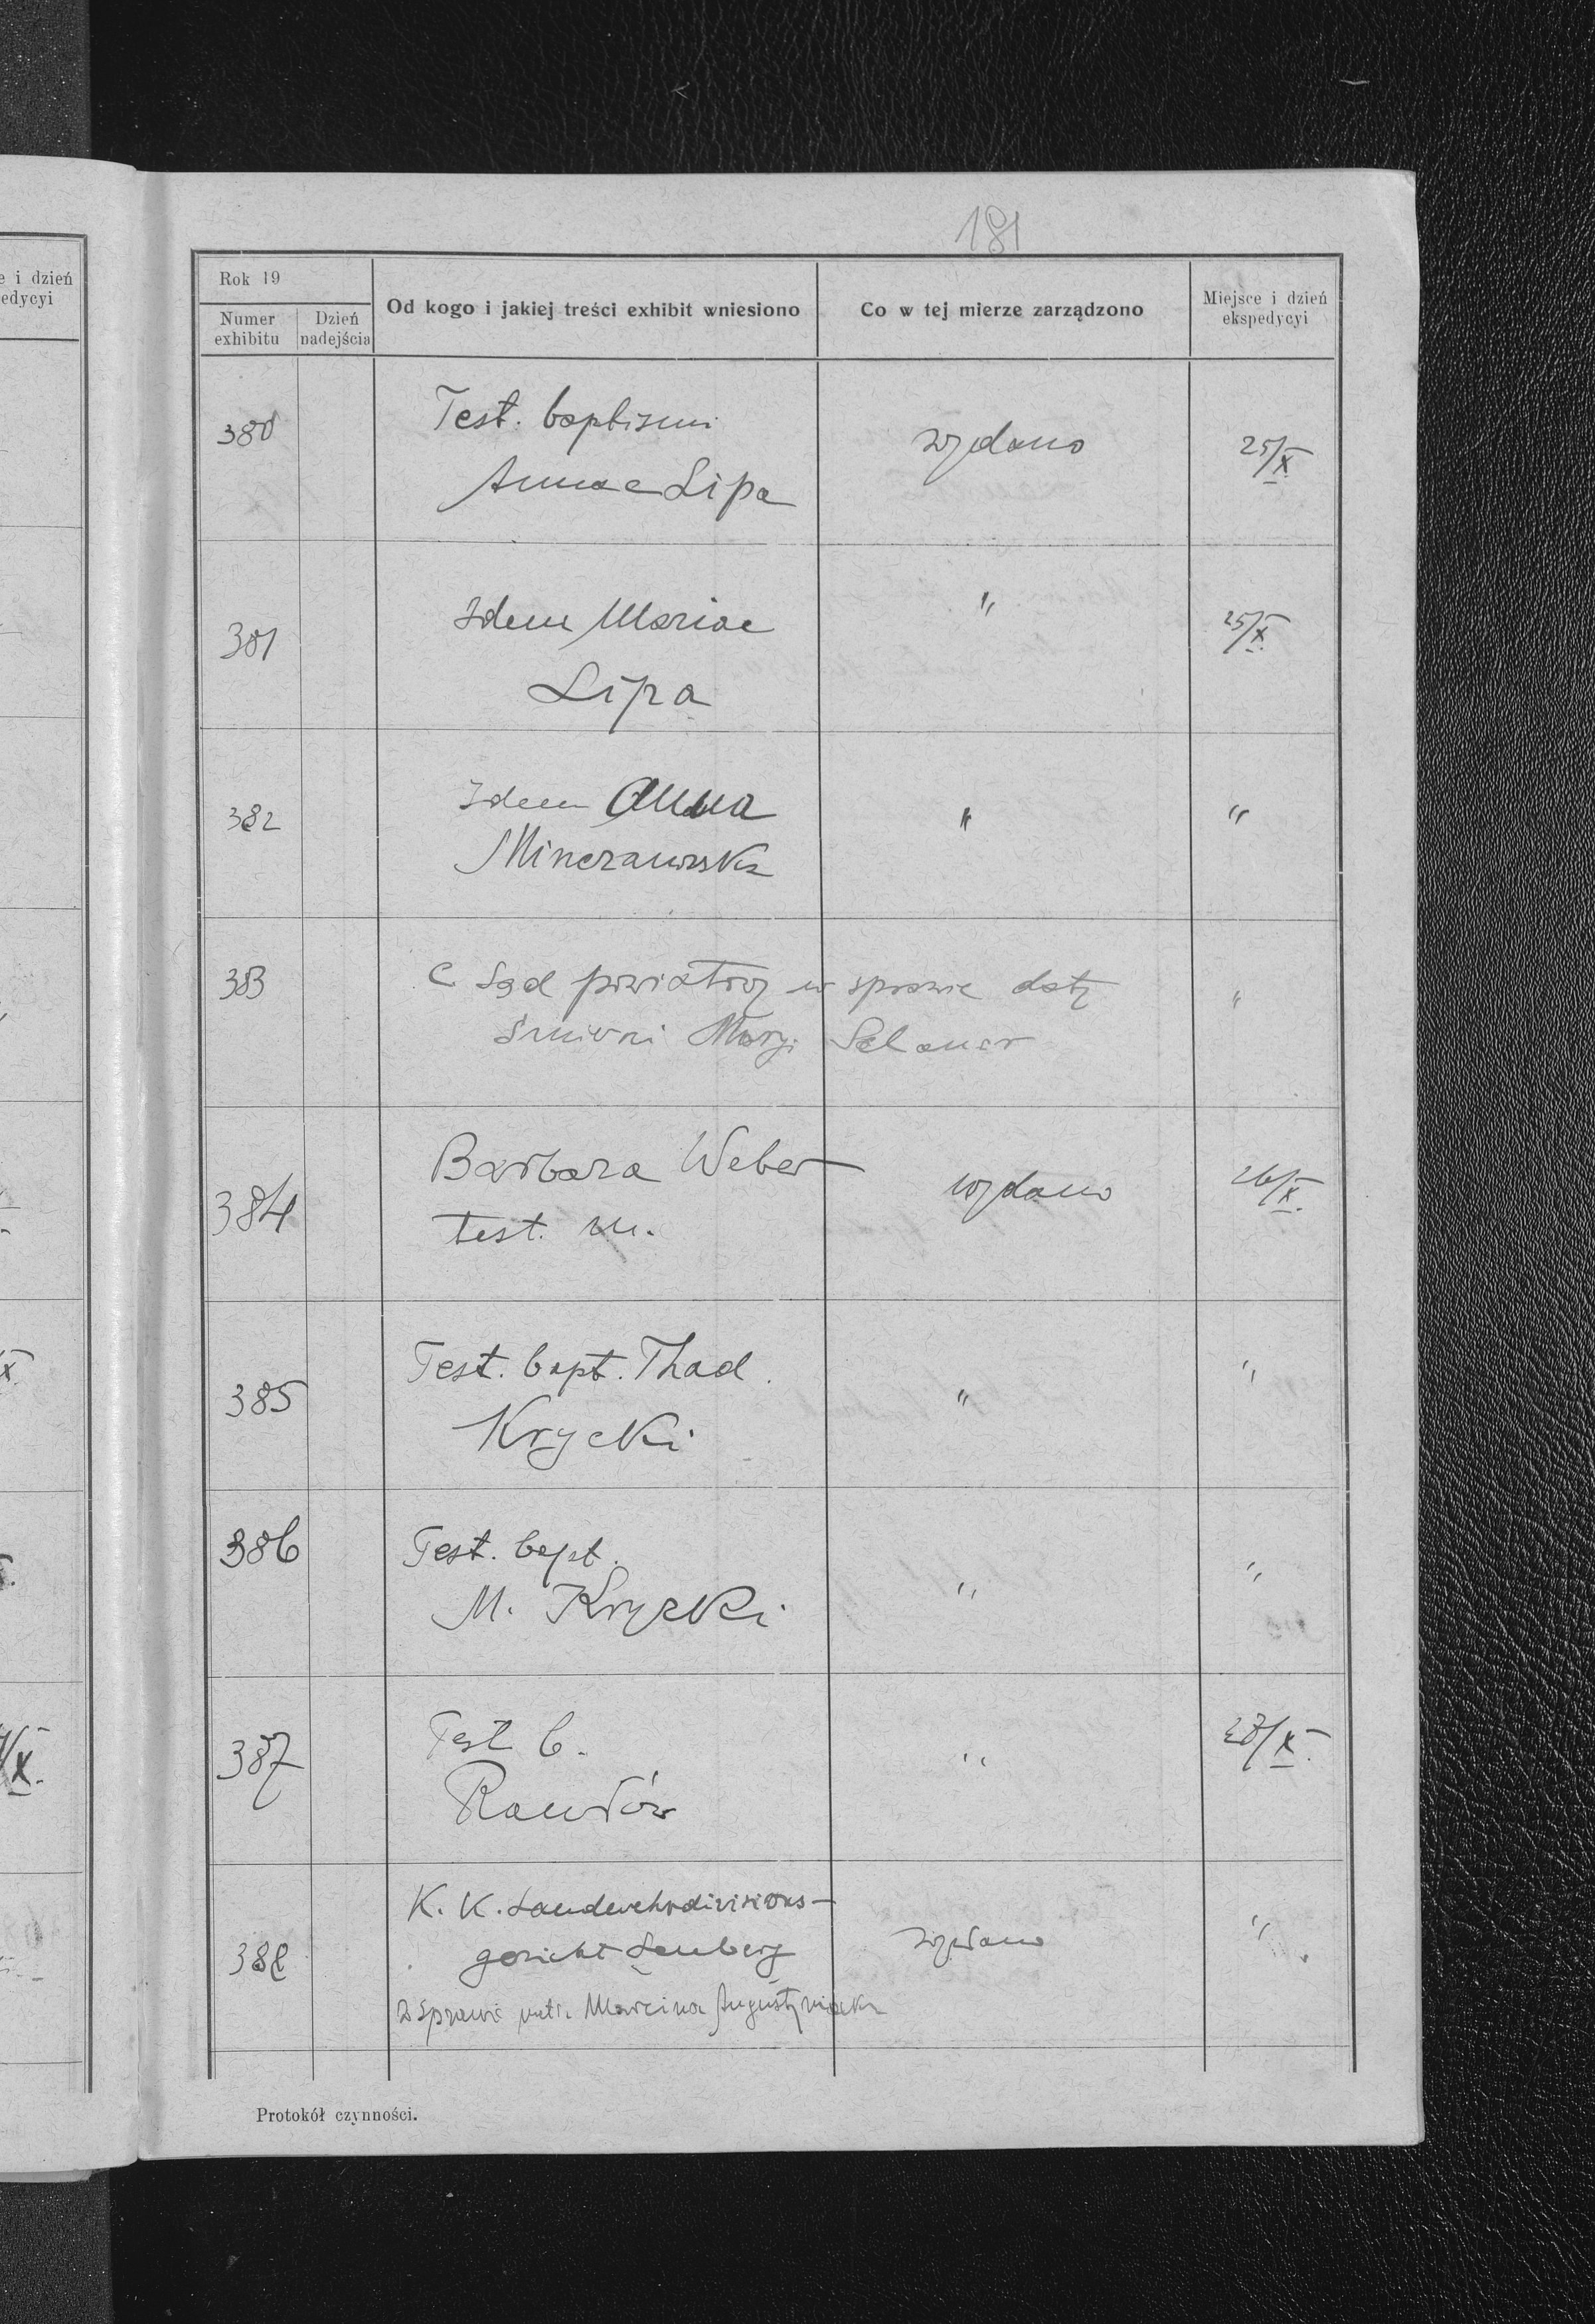 e i dzień
edycyi
X.
/X.
181
Rok 19
Numer exhibitu
Dzień nadejścia
Od kogo i jakiej treści exhibit wniesiono
Co w tej mierze zarządzono
Miejsce i dzień ekspedycyi
380 Test. baptismi wydano 25/X
Annae Lipa
381 Idem Mariae " 25/X.
Lipa
382 Idem Anna " "
383 C Sąd powiatowy w sprawie daty "
śmierci Maryi
384 Barbara Weber wydano 26/X.
test. m.
385 Test. bapt. Thad. " "
Krycki
386 Test. bapt. " "
M. Kryzki
387 Test b. " 28/X.
388 K. K. Landwehrdivisions- wydano "
gericht Lemberg
w sprawie Marcina Augustyniaka
Protokół czynności.